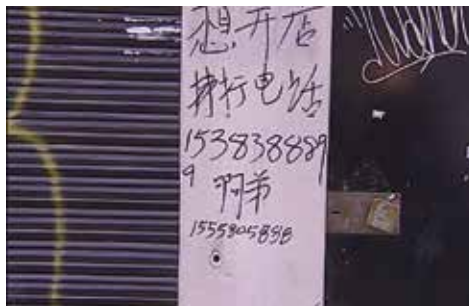 想开店
拨打电话
1538388889
9
阿弟
1555805898